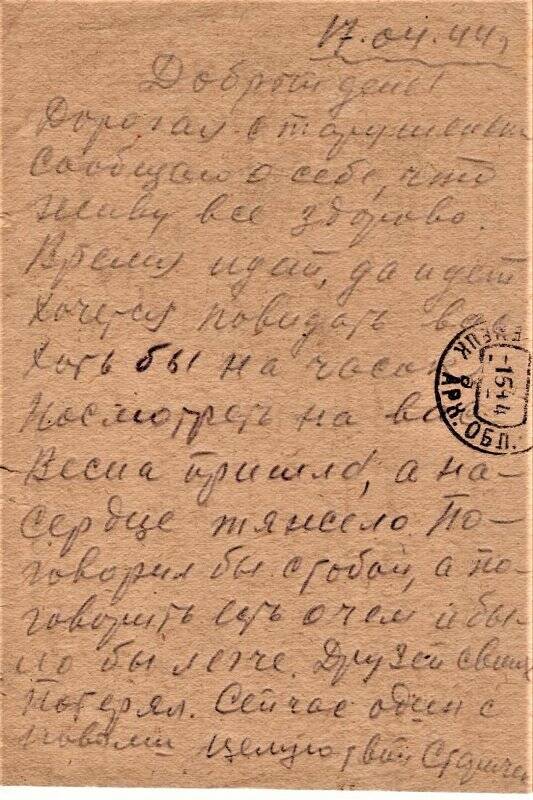 17.04.44г
Добрый день!
Дорогая старушенька
сообщаю о себе, что
живу все здорово.
Время идет, да идет
хочется повидать вас
хоть бы на часок
посмотреть на вас
Весна пришла, а на-
сердце тяжело По-
говорил бы с тобой, а по-
говорить есть о чем и бы-
ло бы легче. Друзей своих
потерял. Сейчас один с
новыми целую твой